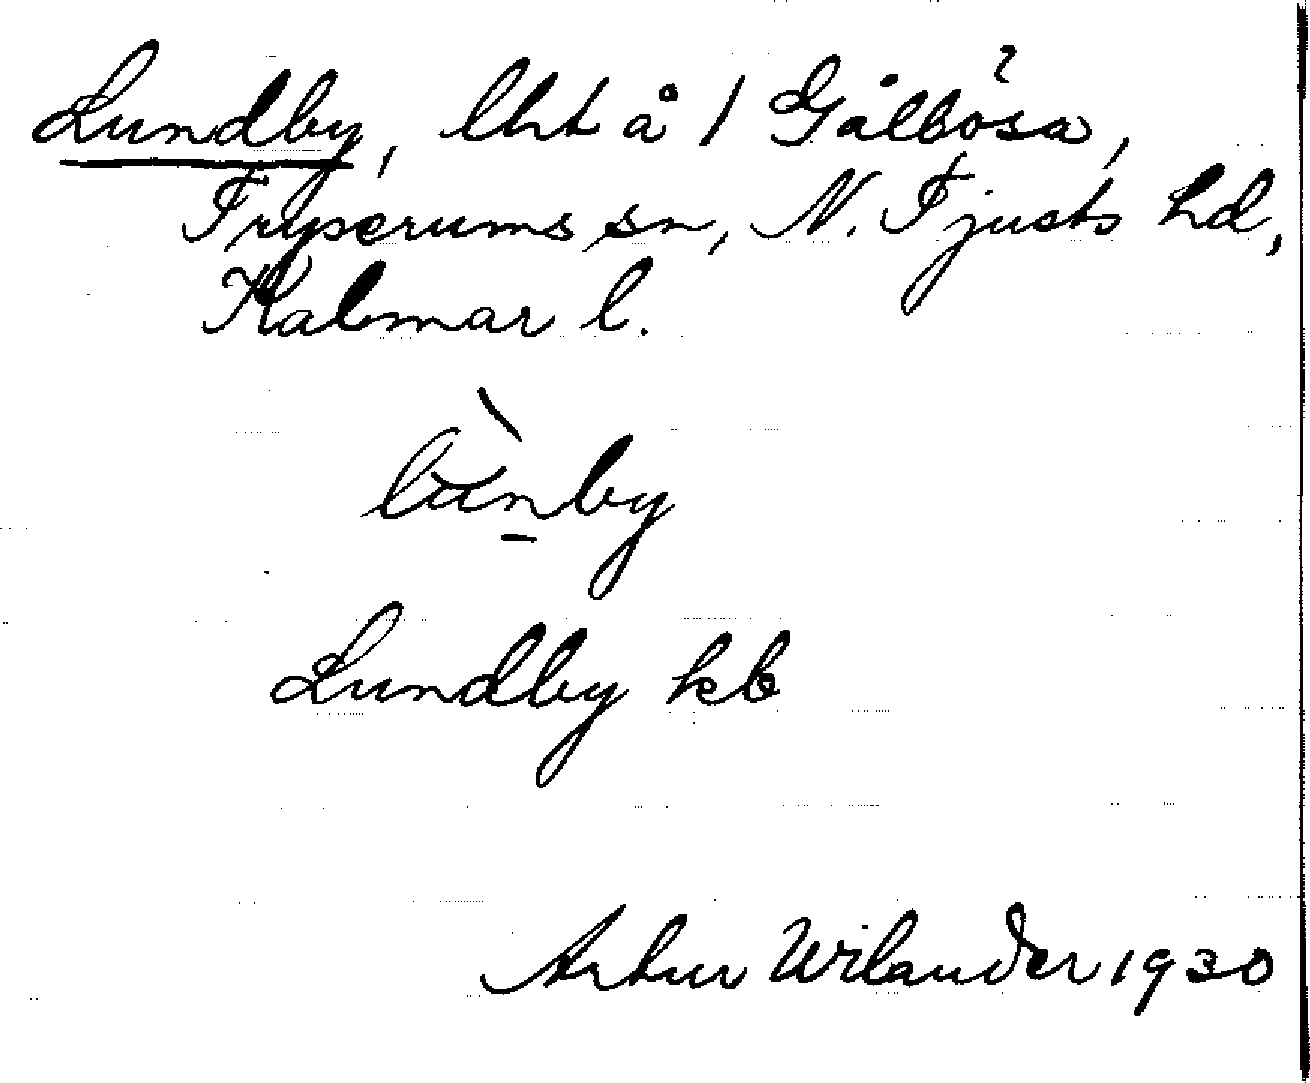 Lundby, lht å 1 Gålbösa,
Tryserums sn, N. Tjusts hd,
Kalmar l.
lùnby
Lundby kb
Artur Wilander 1930